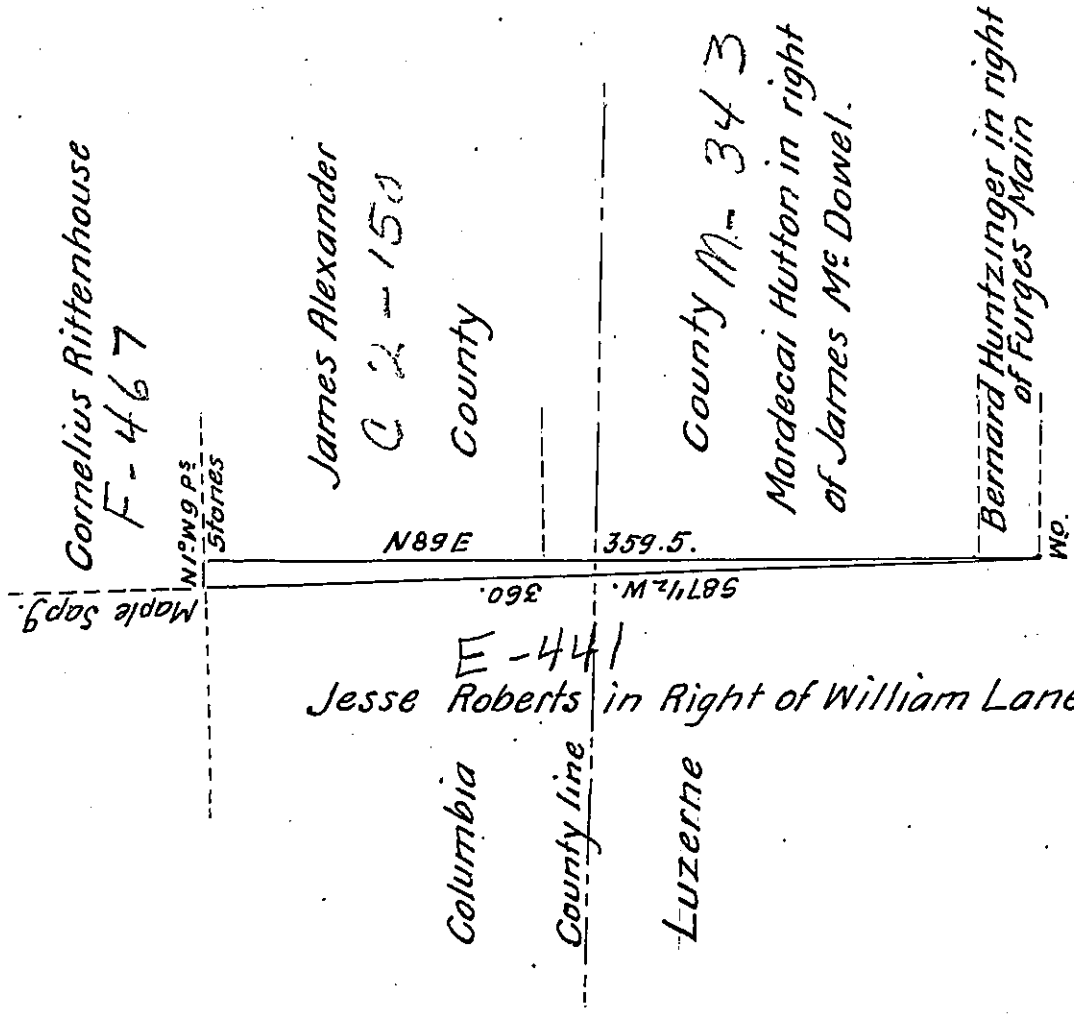 Cornelius Rittenhouse
F-467
N1°W9 Ps
Stones
Maple Sapg.
James Alexander
C 2-150
County
N89E 359.5.
S87 1/2 W. 360.
County M-343
Mordecai Hutton in right
of James Mc Dowel.
Bernard Huntzinger in right
of Furges Main
Wo.
E-441
Jesse Roberts in Right of William Lane
Columbia
County line
Luzerne